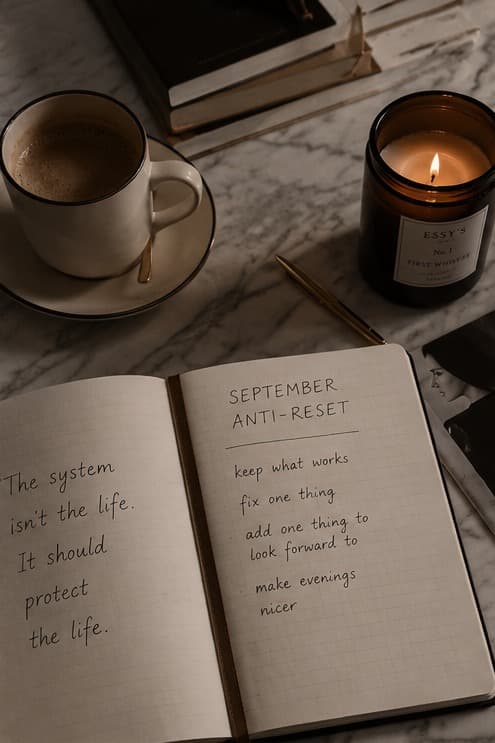 The system
isn't the life.
It should
protect
the life.
SEPTEMBER
ANTI-RESET
keep what works
fix one thing
add one thing to
look forward to
make evenings
nicer
ESSY'S
No 1